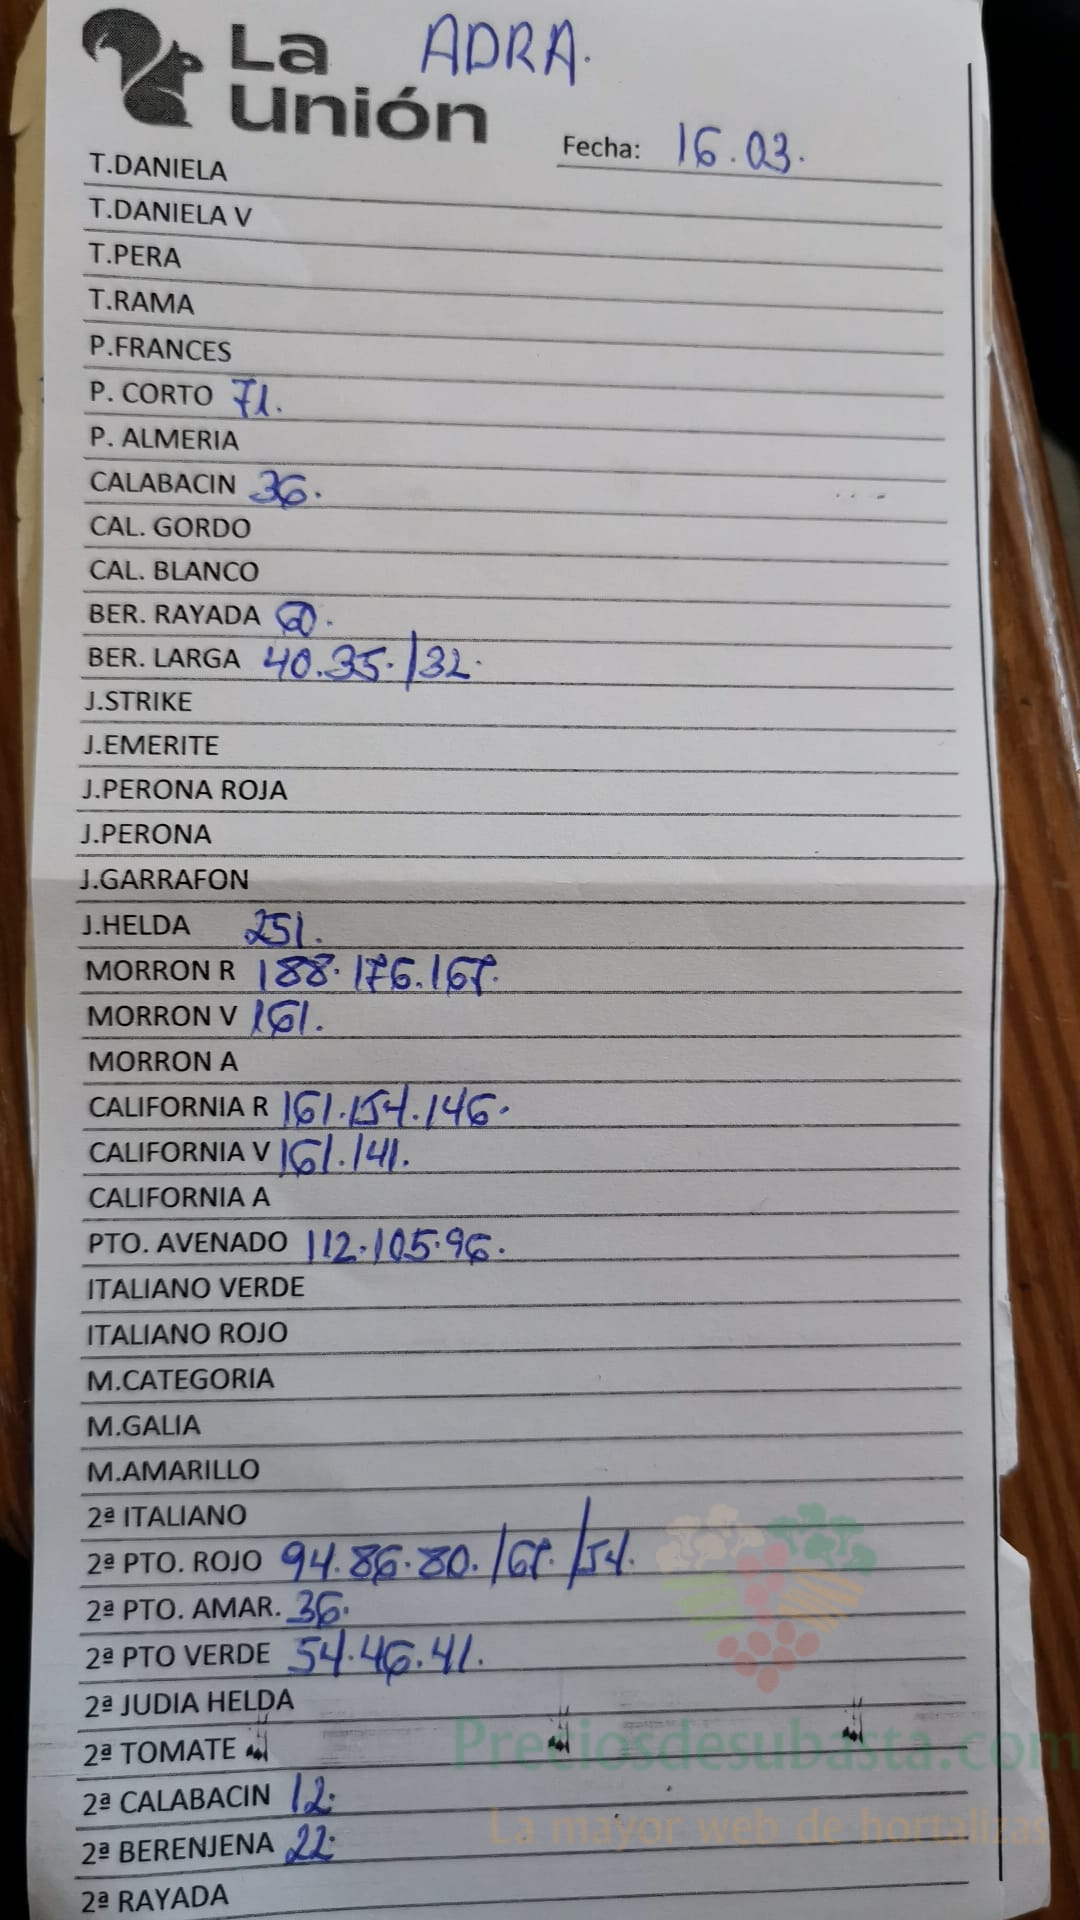 La Unión ADRA.
Fecha: 16.03.
T.DANIELA
T.DANIELA V
T.PERA
T.RAMA
P.FRANCES
P. CORTO 71.
P. ALMERIA
CALABACIN 36.
CAL. GORDO
CAL. BLANCO
BER. RAYADA 60.
BER. LARGA 40.35./32.
J.STRIKE
J.EMERITE
J.PERONA ROJA
J.PERONA
J.GARRAFON
J.HELDA 251.
MORRON R 188.176.167.
MORRON V 161.
MORRON A
CALIFORNIA R 161.154.146.
CALIFORNIA V 161.141.
CALIFORNIA A
PTO. AVENADO 112.105.96.
ITALIANO VERDE
ITALIANO ROJO
M.CATEGORIA
M.GALIA
M.AMARILLO
2ª ITALIANO
2ª PTO. ROJO 94.86.80./67./54.
2ª PTO. AMAR. 36.
2ª PTO VERDE 54.46.41.
2ª JUDIA HELDA
2ª TOMATE
Preciosdesubasta.com
2ª CALABACIN 12.
La mayor web de hortalizas
2ª BERENJENA 22.
2ª RAYADA